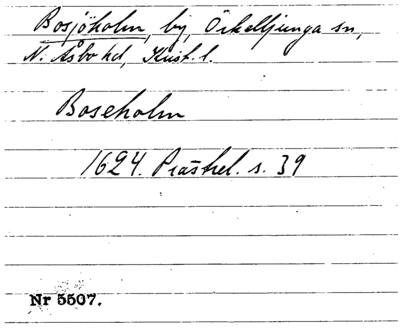 Bosjöholm, by, Örkelljunga sn,
N. Åsbo hd, Krist. l.
Boseholm
1624. Prästrel. s. 39
Nr 5507.